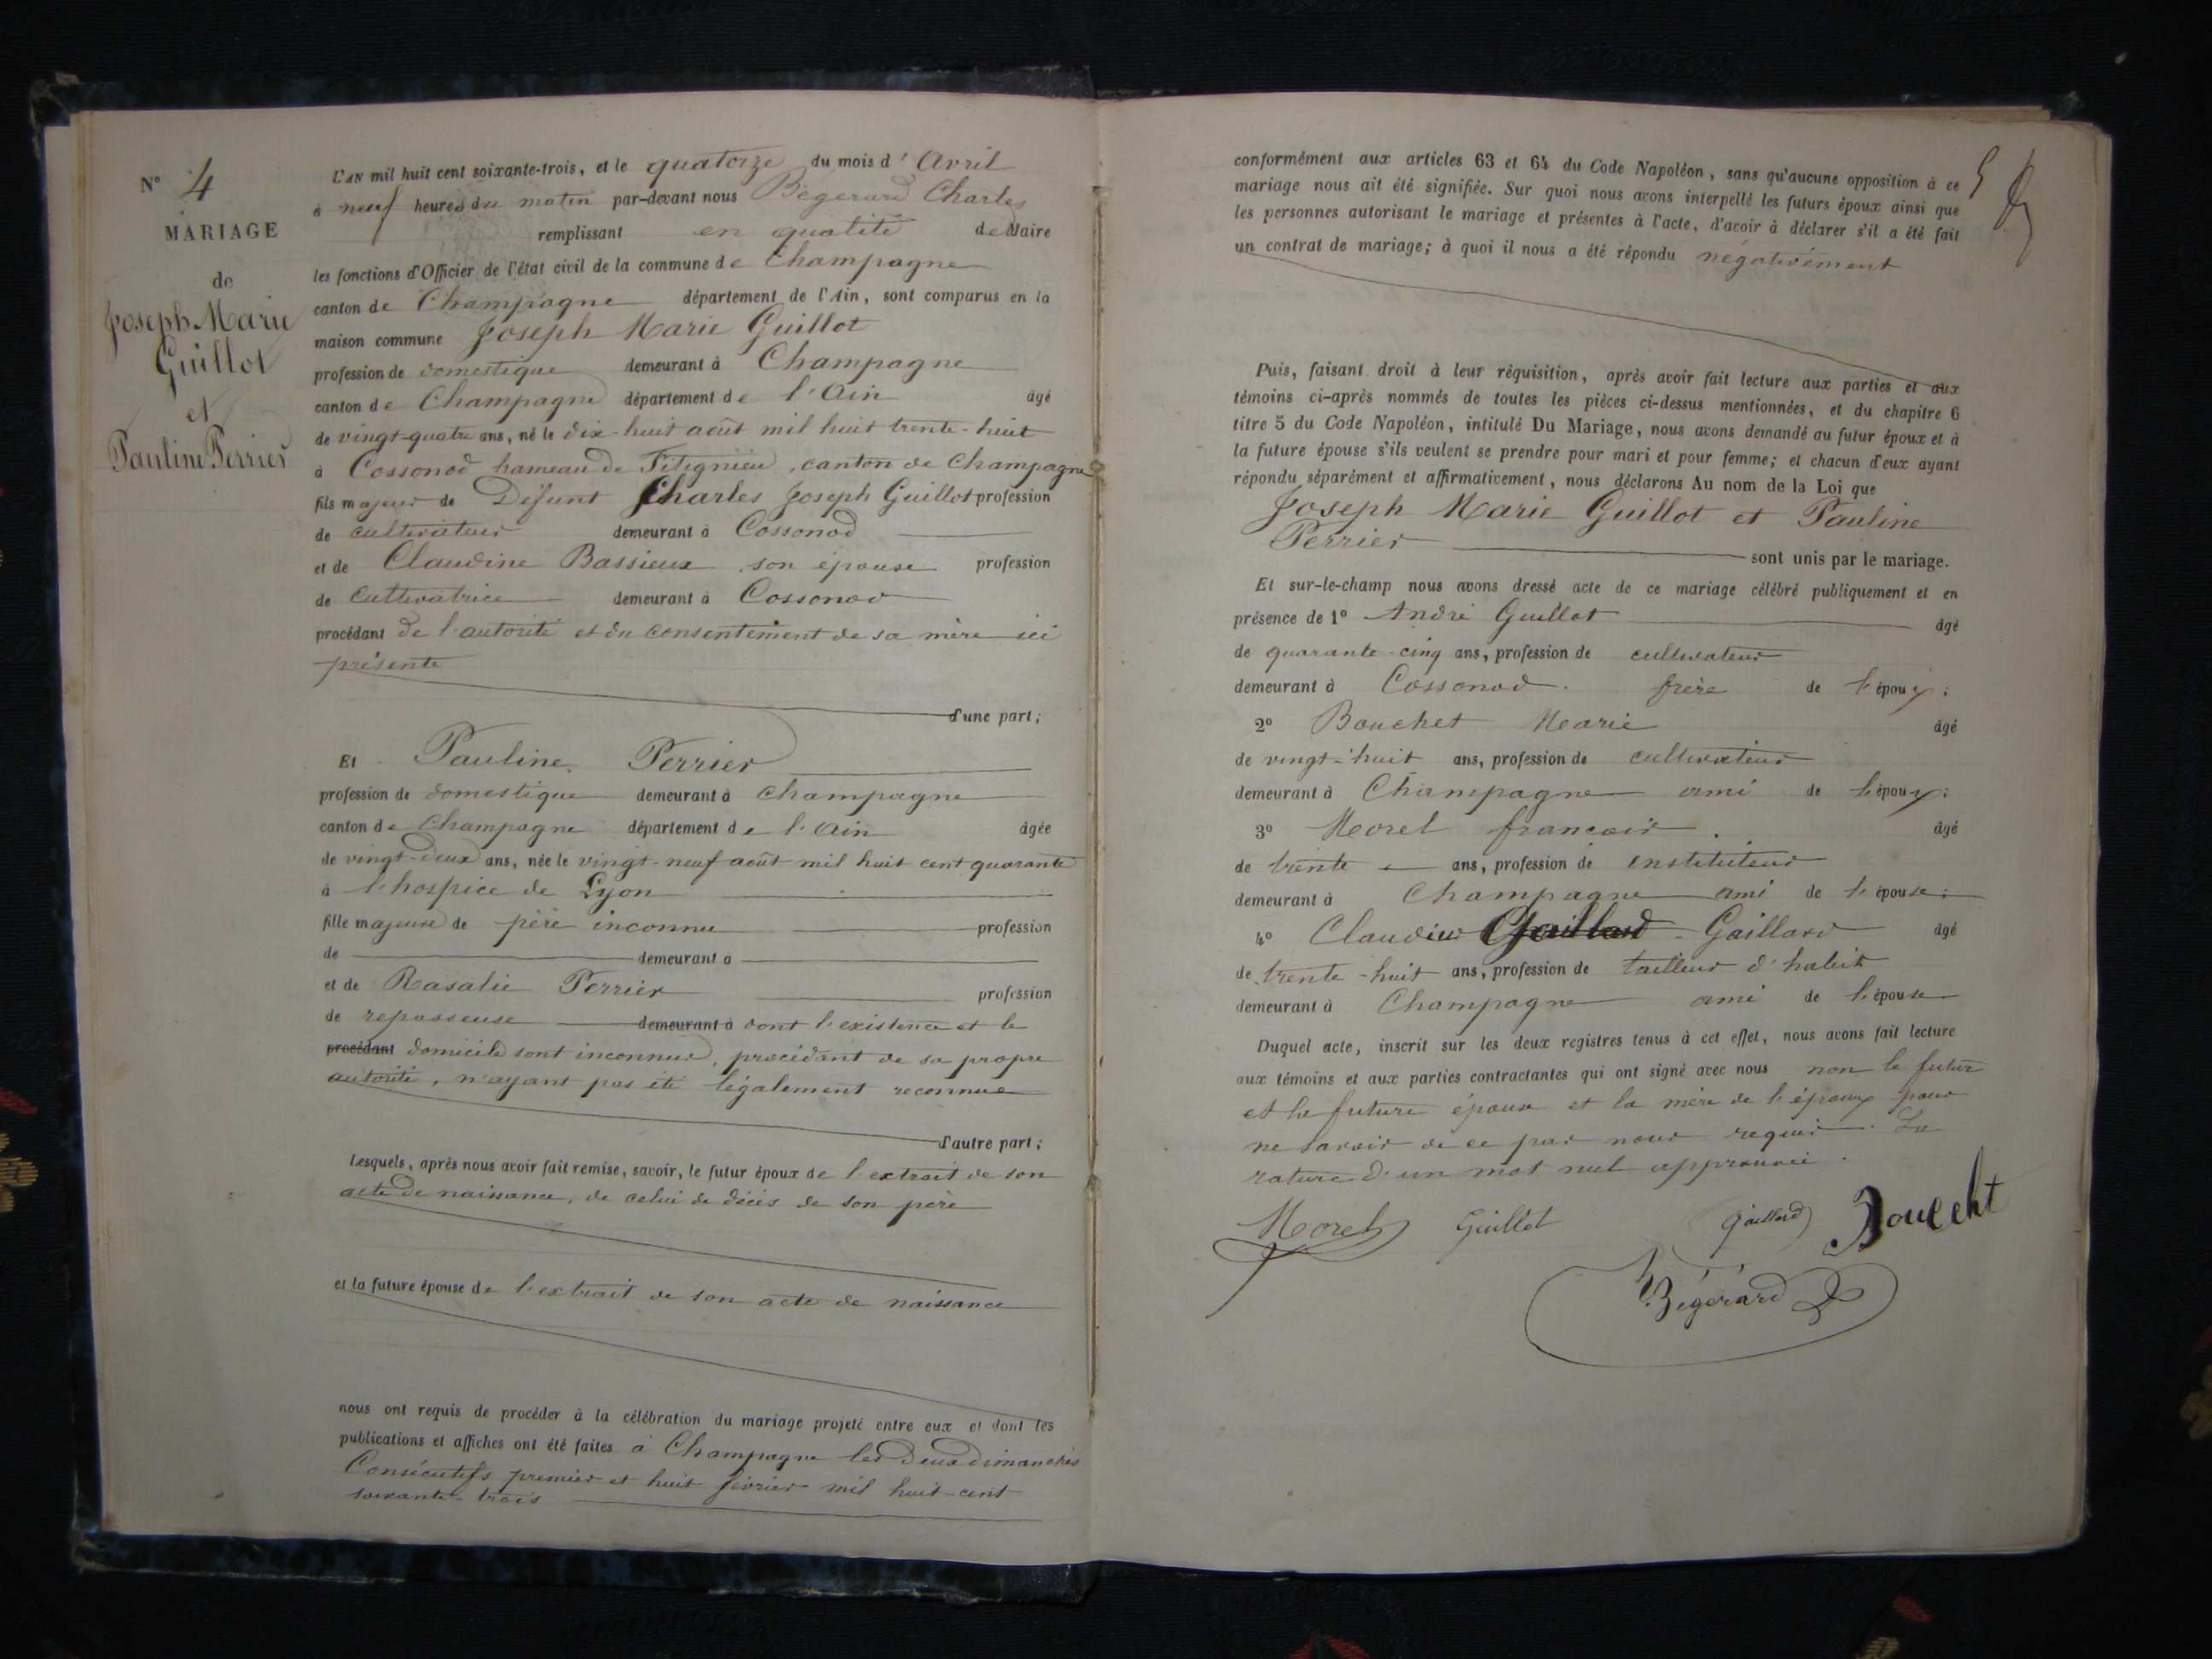 N° 4
MARIAGE
de
Joseph Marie
Guillot
et
Pauline Perrier
L'AN mil huit cent soixante-trois, et le quatorze du mois d'Avril
à neuf heures du matin par-devant nous Bégerard Charles
remplissant en qualité de Maire
les fonctions d'Officier de l'état civil de la commune de Champagne
canton de Champagne département de l'Ain, sont comparus en la
maison commune Joseph Marie Guillot
profession de domestique demeurant à Champagne
canton de Champagne département de l'Ain âgé
de vingt-quatre ans, né le dix-huit août mil huit trente-huit
à Cossonod hameau de Fitignieu, canton de Champagne
fils majeur de Défunt Charles Joseph Guillot profession
de cultivateur demeurant à Cossonod
et de Claudine Bassieux son épouse profession
de Cultivatrice demeurant à Cossonod
procédant de l'autorité et du consentement de sa mère ici
présente
d'une part;
Et Pauline Perrier
profession de domestique demeurant à Champagne
canton de Champagne département de l'Ain âgée
de vingt-deux ans, née le vingt-neuf août mil huit cent quarante
à l'hospice de Lyon
fille majeure de père inconnu profession
de demeurant à
et de Rasalie Perrier profession
de repasseuse demeurant à dont l'existence et le
procédant domicile sont inconnus, procédant de sa propre
autorité, n'ayant pas été légalement reconnue
d'autre part;
Lesquels, après nous avoir fait remise, savoir, le futur époux de l'extrait de son
acte de naissance, de celui de décès de son père
et la future épouse de l'extrait de son acte de naissance
nous ont requis de procéder à la célébration du mariage projeté entre eux et dont les
publications et affiches ont été faites à Champagne les Deux dimanches
Consécutifs premier et huit février mil huit-cent
soixante-trois
5
conformément aux articles 63 et 64 du Code Napoléon, sans qu'aucune opposition à ce
mariage nous ait été signifiée. Sur quoi nous avons interpellé les futurs époux ainsi que
les personnes autorisant le mariage et présentes à l'acte, d'avoir à déclarer s'il a été fait
un contrat de mariage; à quoi il nous a été répondu négativement
Puis, faisant droit à leur réquisition, après avoir fait lecture aux parties et aux
témoins ci-après nommés de toutes les pièces ci-dessus mentionnées, et du chapitre 6
titre 5 du Code Napoléon, intitulé Du Mariage, nous avons demandé au futur époux et à
la future épouse s'ils veulent se prendre pour mari et pour femme; et chacun d'eux ayant
répondu séparément et affirmativement, nous déclarons Au nom de la Loi que
Joseph Marie Guillot et Pauline
Perrier sont unis par le mariage.
Et sur-le-champ nous avons dressé acte de ce mariage célébré publiquement et en
présence de 1° André Guillot âgé
de quarante-cinq ans, profession de cultivateur
demeurant à Cossonod. frère de l'époux;
2° Bouchet Marie âgé
de vingt-huit ans, profession de cultivateur
demeurant à Champagne ami de l'époux;
3° Morel françois. âgé
de trente ans, profession de instituteur
demeurant à Champagne ami de l'épouse;
4° Claudius Gaillard Gaillard âgé
de trente-huit ans, profession de tailleur d'habits
demeurant à Champagne ami de l'épouse
Duquel acte, inscrit sur les deux registres tenus à cet effet, nous avons fait lecture
aux témoins et aux parties contractantes qui ont signé avec nous non le futur
et la future épouse et la mère de l'époux pour
ne savoir de ce par nous requis. La
rature d'un mot nul approuvée.
Morel Guillot Gaillard Bouceht
Bégerard